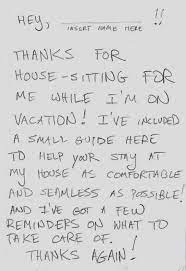 HEY, __________!!
INSERT NAME HERE
THANKS FOR
HOUSE-SITTING FOR
ME WHILE I'M ON
VACATION! I'VE INCLUDED
A SMALL GUIDE HERE
TO HELP YOUR STAY AT
MY HOUSE AS COMFORTABLE
AND SEAMLESS AS POSSIBLE!
AND I'VE GOT A FEW
REMINDERS ON WHAT TO
TAKE CARE OF.
THANKS AGAIN!